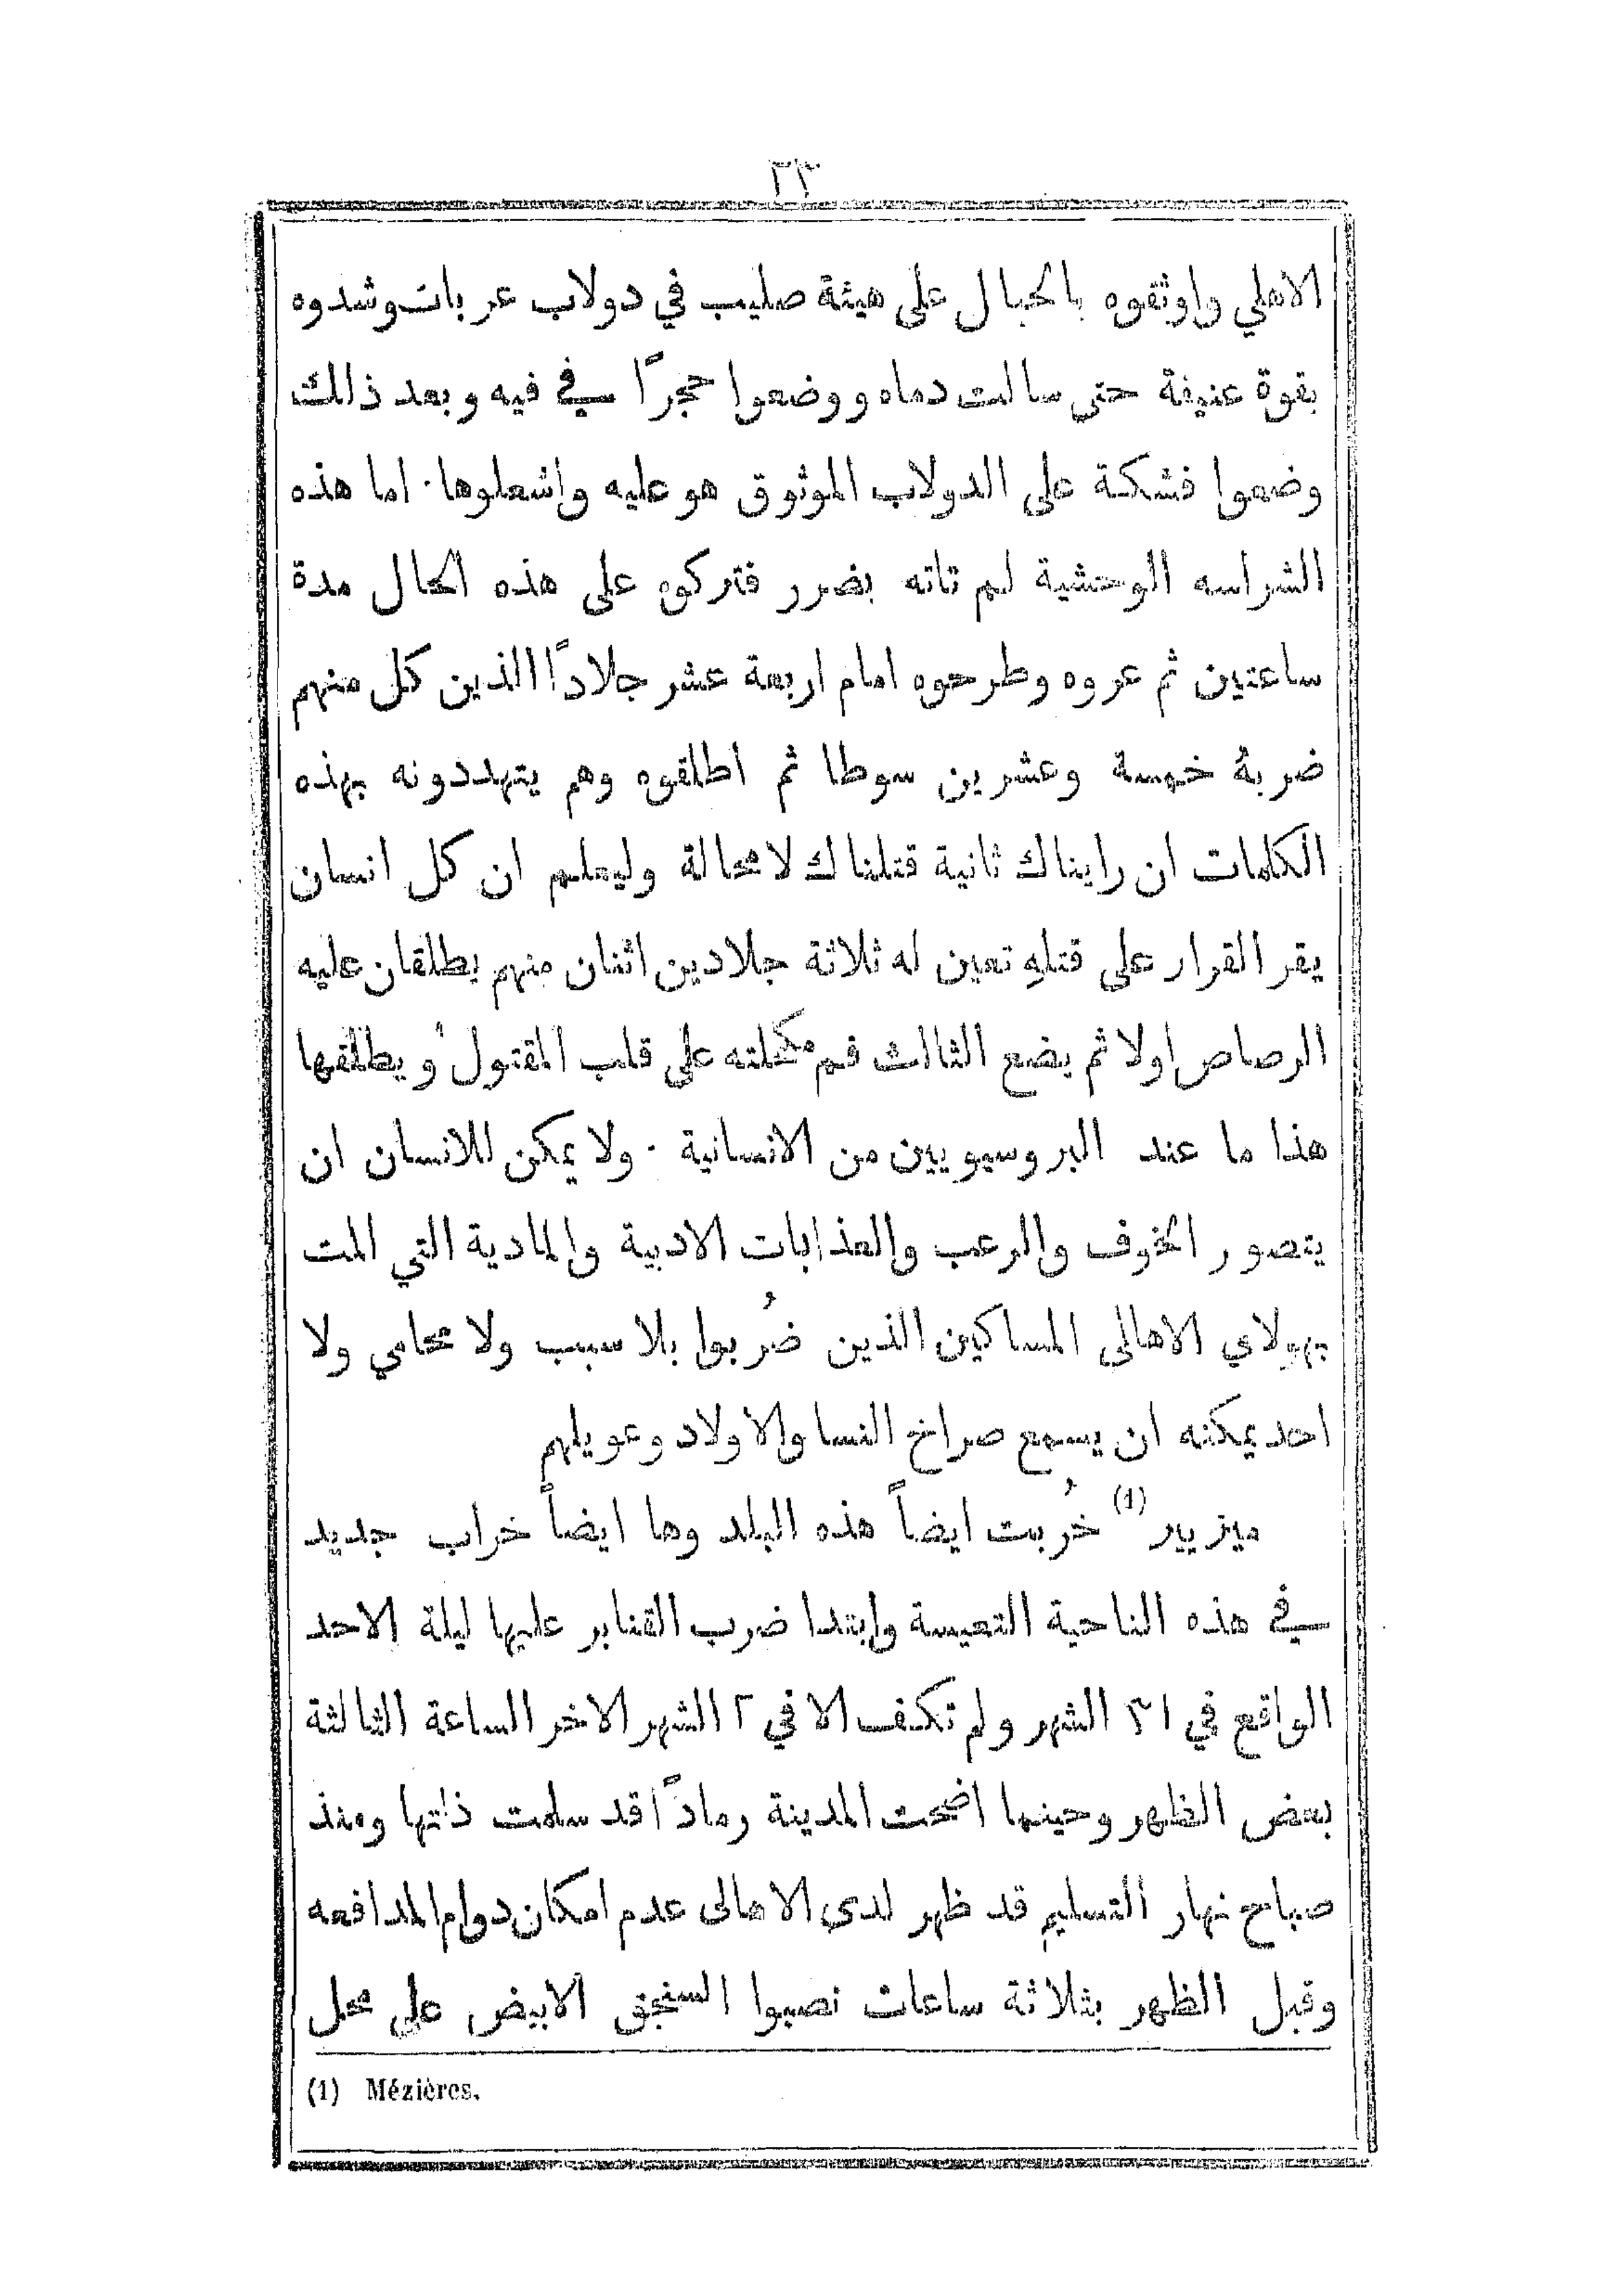 ٢٣
الاهلي واوثقوه بالحبال على هيئة صليب في دولاب عربات وشدوه
بقوة عنيفة حتى سالت دماه ووضعوا حجرًا في فيه وبعد ذلك
وضعوا فشكة على الدولاب الموثوق هو عليه واشعلوها٠ اما هذه
الشراسه الوحشية لم تاته بضرر فتركوه على هذه الحال مدة
ساعتين ثم عروه وطرحوه امام اربعة عشر جلادًا الذين كل منهم
ضربهُ خمسة وعشرين سوطا ثم اطلقوه وهم يتهددونه بهذه
الكلمات ان رايناك ثانية قتلناك لا محالة وليعلم ان كل انسان
يقر القرار على قتلهِ تعين له ثلاثة جلادين اثنان منهم يطلقان عليه
الرصاص اولا ثم يضع الثالث فم مكحلته على قلب المقتول ويطلقها
هذا ما عند البروسيويين من الانسانية ٠ ولا يمكن للانسان ان
يتصور الخوف والرعب والعذابات الادبية والمادية التي المت
بهولاي الاهالى المساكين الذين ضُربوا بلا سبب ولا محامي ولا
احد يمكنه ان يسمع صراخ النسا والاولاد وعويلهم
ميزيير (1) خُربت ايضاً هذه البلد وها ايضاً خراب جديد
في هذه الناحية التعيسة وابتدا ضرب القنابر عليها ليلة الاحد
الواقع في ٣١ الشهر ولم تكف الا في ٢ الشهر الاخر الساعة الثالثة
بعض الظهر وحينما اضحت المدينة رمادًا قد سلمت ذاتها ومنذ
صباح نهار التسليم قد ظهر لدى الاهالى عدم امكان دوام المدافعه
وقبل الظهر بثلاثة ساعات نصبوا السنجق الابيض على محل
(1) Mézières.